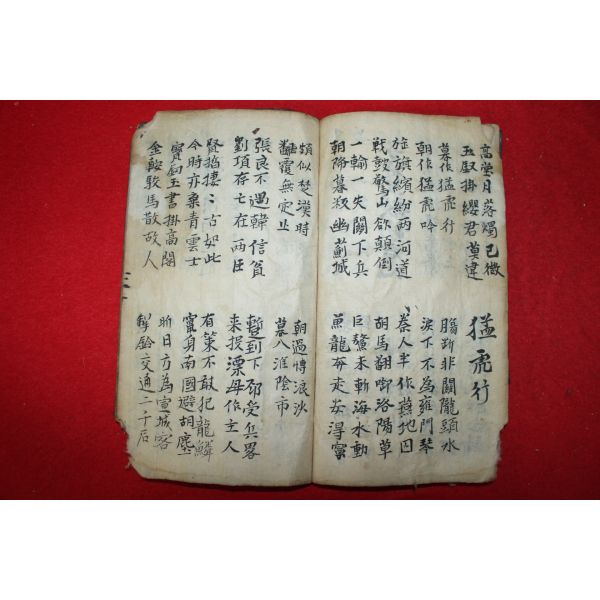 高堂月落燭已微
玉釵掛纓君莫違
猛虎行
暮作猛虎行
朝作猛虎吟
腸斷非關隴頭水
淚下不為雍門琴
旌旗繽紛兩河道
戰鼓驚山欲顛倒
秦人半作燕地囚
胡馬翻啣洛陽草
一輸一失關下兵
朝降暮叛幽薊城
巨鰲未斬海水動
魚龍奔走安得寧
頗似楚漢時
翻覆無定止
朝過愽浪沙
暮入淮陰市
張良不遇韓信貧
劉項存亡在兩臣
暫到下邳受兵畧
來投漂母作主人
賢哲棲〻古如此
今時亦棄青雲士
有策不敢犯龍鱗
竄身南國避胡塵
寶釼玉書掛高閣
金鞍駿馬散故人
昨日方為宣城客
掣鈴交通二千石